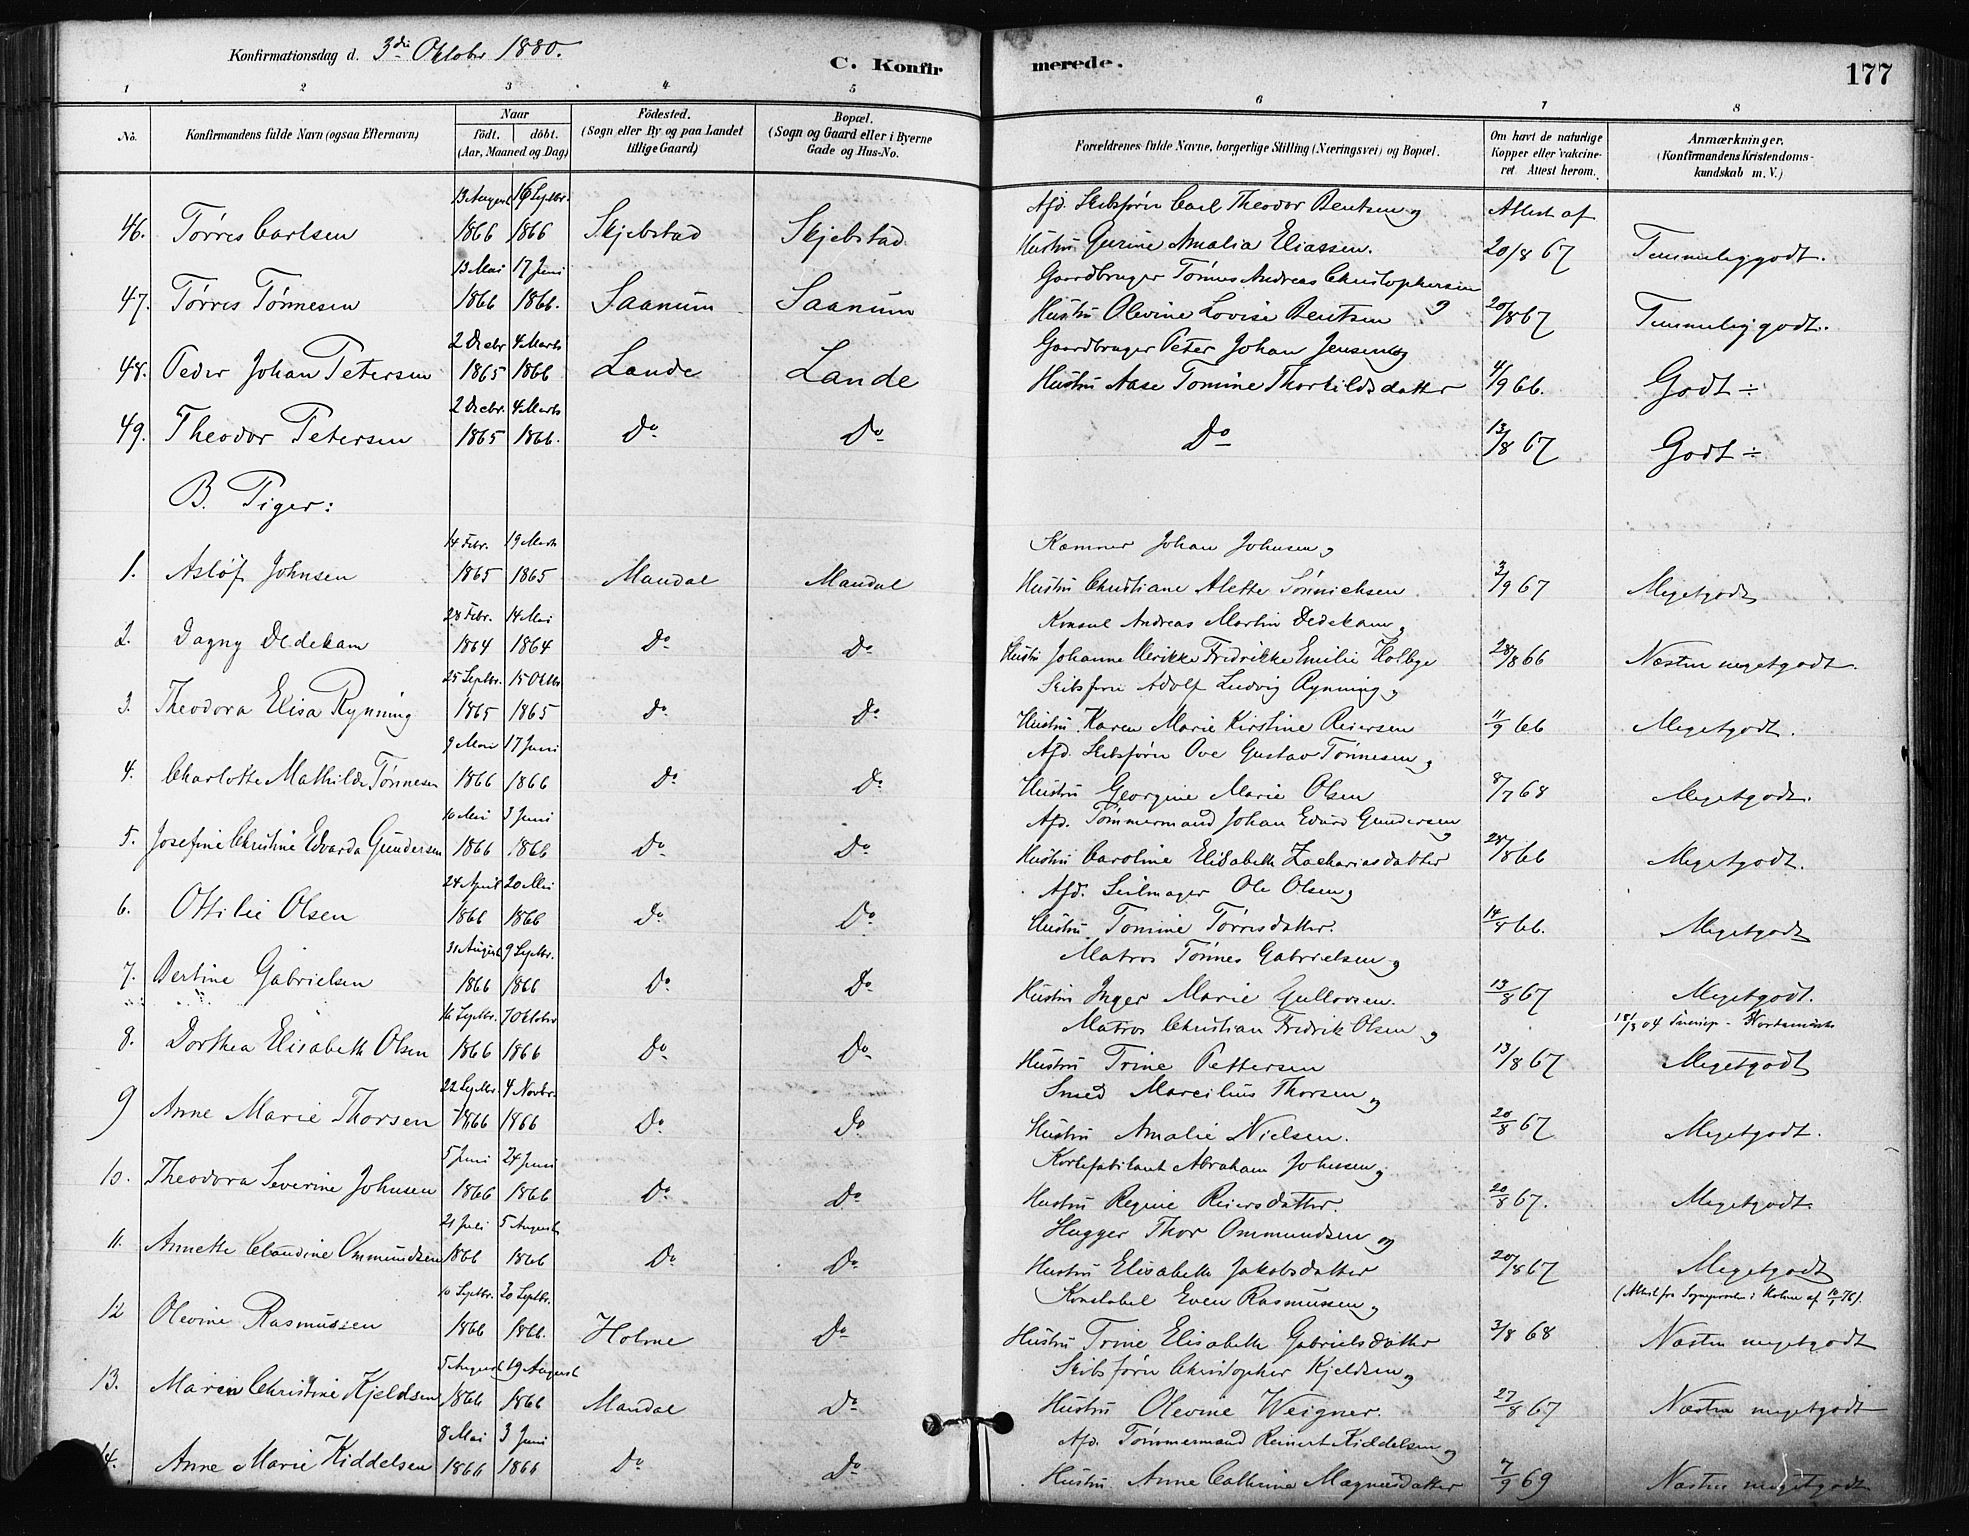 Konfirmationsdag d. 3die Oktober 1880.
C. Konfirmerede.
177
1 2 3 4 5 6 7 8
No. Konfirmandens fulde Navn (ogsaa Efternavn) Naar født. døbt. (Aar, Maaned og Dag) Födested. (Sogn eller By og paa Landet tillige Gaard) Bopæl. (Sogn og Gaard eller i Byerne Gade og Hus-No. Forældrenes fulde Navne, borgerlige Stilling (Næringsvei) og Bopæl. Om havt de naturlige Kopper eller vakcineret Attest herom. Anmærkninger. (Konfirmandens Kristendomskundskab m. V.)
13 August 16 Septbr. Afd. Skibsfører Carl Theodor Bentsen og Attest af
46. Tørres Carlsen 1866 1866 Skjebstad Skjebstad Hustru Gurine Amalia Eliassen. 20/8 67 Temmelig godt.
13 Mai 17 Juni Gaardbruger Tønnes Andreas Christophersen
47. Tørres Tønnesen 1866 1866. Saanum Saanum Hustru Olevine Lovise Bentsen og 20/8 67 Temmelig godt.
2 Decbr 4 Marts Gaardbruger Peter Johan Jensen og
48. Peder Johan Petersen 1865 1866 Lande Lande Hustru Aase Tomine Thorkildsdatter 4/9 66. Godt ÷
2 Decbr. 4 Marts
49. Theodor Petersen 1865 1866. Do Do Do 13/8 67 Godt ÷
B. Piger:
14 Febr. 19 Marts Kæmner Johan Johnsen og
1. Asløf Johnsen 1865 1865 Mandal Mandal Hustru Christiane Alette Sønnichsen 3/9 67 Megetgodt
28 Febr. 14 Mai Konsul Andreas Martin Dedekam og
2. Dagny Dedekam 1864 1864 Do Do Hustru Johanne Ulrikke Fredrikke Emilie Holbye 28/8 66 Næsten megetgodt.
25 Septbr. 15 Oktbr Skibsfører Adolf Ludvig Rynning og
3. Theodora Elisa Rynning 1865 1865 Do Do Hustru Karen Marie Kirstine Reiersen 11/9 66 Megetgodt.
9 Mai 17 Juni Afd. Skibsfører Ove Gustav Tønnesen og
4. Charlotte Mathilde Tønnesen 1866 1866 Do Do Hustru Georgine Marie Olsen 8/7 68 Megetgodt.
10 Mai 3 Juni Afd. Tømmermand Johan Edvard Gundersen og
5. Josefine Christine Edvarda Gundersen 1866 1866 Do Do Hustru Caroline Elisabeth Zachariasdatter 28/8 66 Megetgodt.
24 April 20 Mai Afd. Seilmager Ole Olsen og
6. Ottilie Olsen 1866 1866 Do Do Hustru Tomine Tørrisdatter. 14/8 66. Megetgodt
31 August 9 Septbr. Matros Tønnes Gabrielsen og
7. Bertine Gabrielsen 1866 1866 Do Do Hustru Inger Marie Gullovsen. 13/8 67 Megetgodt.
16 Septbr. 7 Oktober Matros Christian Fredrik Olsen og 18/3 04
8. Dorthea Elisabeth Olsen 1866 1866 Do Do Hustru Trine Pettersen 13/8 67 Megetgodt
22 Septbr. 4 Novbr. Smed Marcilius Thorsen og
9 Anne Marie Thorsen 1866 1866 Do Do Hustru Amalie Nielsen. 20/8 67 Megetgodt.
5 Juni 24 Juni Korkefabrikant Abraham Johnsen og
10. Theodora Severine Johnsen 1866 1866 Do Do Hustru Regine Reiersdatter. 20/8 67. Megetgodt.
21 Juli 5 August Hugger Thor Ommundsen og
11. Annette Claudine Ommundsen 1866 1866 Do Do Hustru Elisabeth Jakobsdatter 20/8 67 Megetgodt
10 Septbr. 30 Septbr. Konstabel Even Rasmussen og (Attest fra Sognepresten i Holme af 10/1 76).
12 Olevine Rasmussen 1866 1866. Holme Do Hustru Trine Elisabeth Gabrielsdatter 3/8 68 Næsten megetgodt
5 August 19 August Skibsfører Christopher Kjeldsen og
13. Maren Christine Kjeldsen 1866 1866 Mandal Do Hustru Olevine Weigner. 27/8 67 Næsten megetgodt
8 Mai 3 Juni Afd. Tømmermand Reinert Kiddelsen og
14. Anne Marie Kiddelsen 1866 1866 Do Do Hustru Anne Cathrine Magnusdatter 7/9 69 Næsten megetgodt